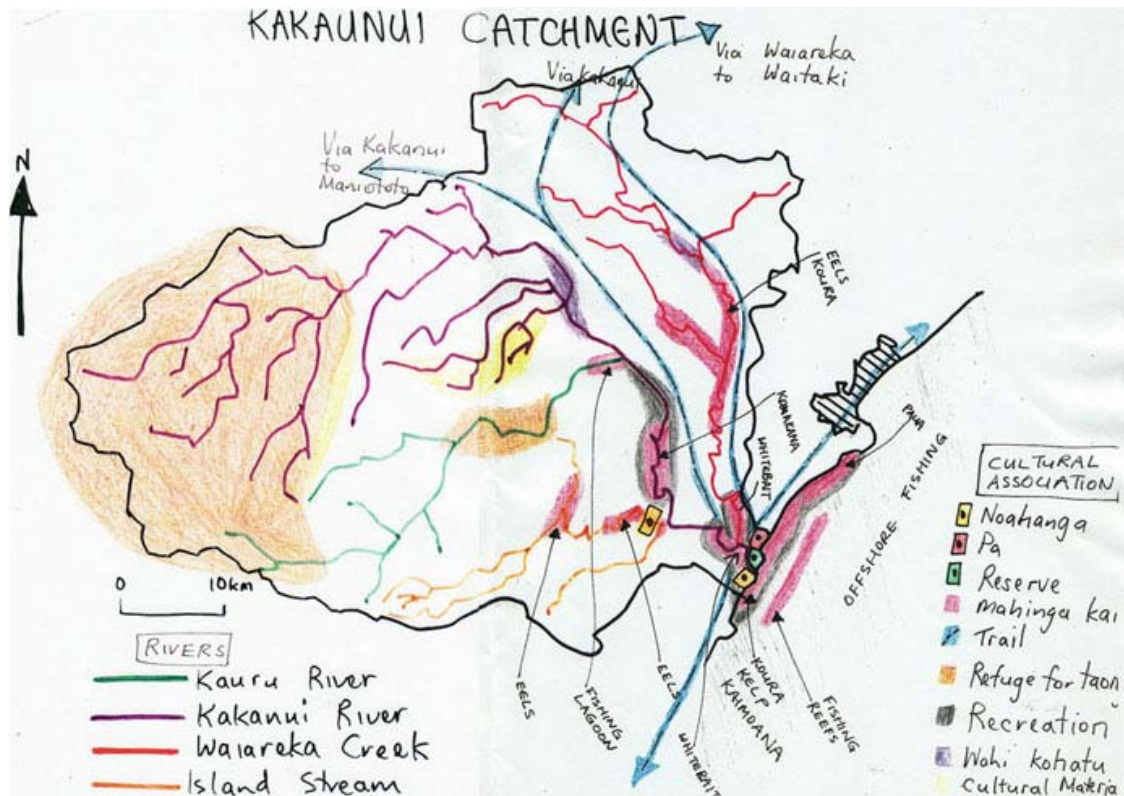 KAKAUNUI CATCHMENT
Via Waiareka
to Waitaki
Via Kakanui
Via Kakanui
to
Maniototo
N
EELS
KOURA
KANAKANA
WHITEBAIT
PAUA
OFFSHORE FISHING
0 10km
RIVERS
Kauru River
Kakanui River
Waiareka Creek
Island Stream
EELS
FISHING
LAGOON
EELS
WHITEBAIT
KOURA
KELP
KAIMOANA
FISHING
REEFS
CULTURAL
ASSOCIATION
Noahanga
Pa
Reserve
Mahinga kai
Trail
Refuge for taon
Recreation
Wohi kohatu
Cultural Materia